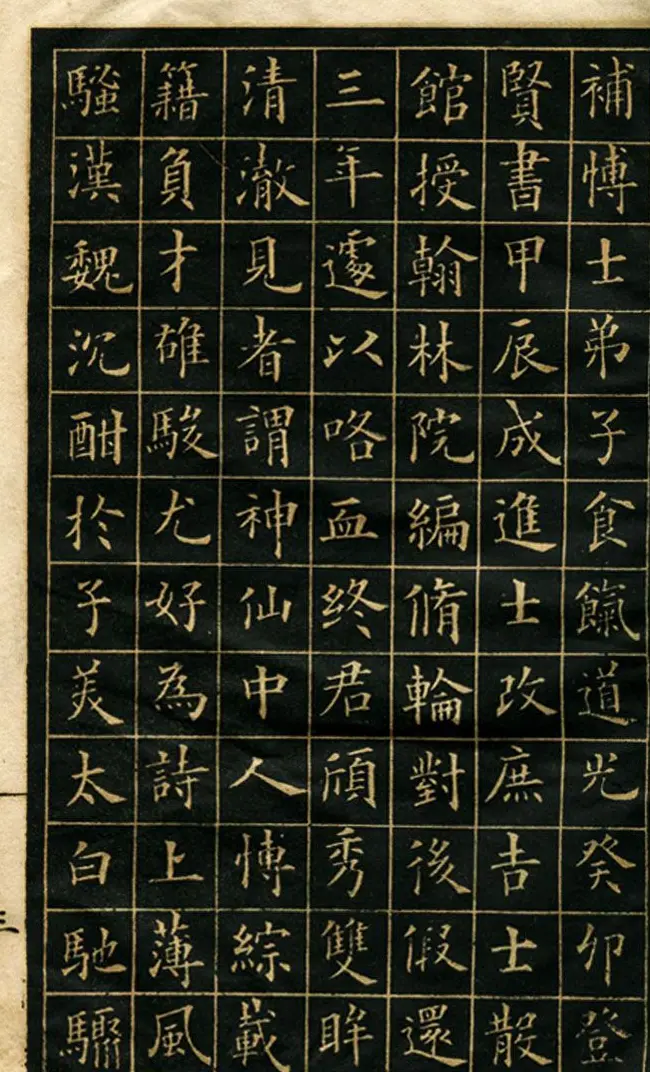 補愽士弟子食餼道光癸卯登
賢書甲辰成進士改庶吉士散
館授翰林院編脩輪對後假還
三年遽以咯血終君頎秀雙眸
清澈見者謂神仙中人愽綜載
籍負才雄駿尤好為詩上薄風
騷漢魏沉酣於子美太白馳驟